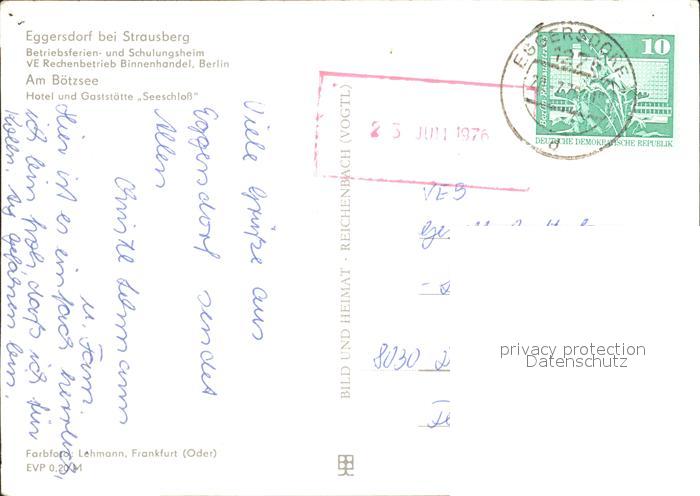 Eggersdorf bei Strausberg
Betriebsferien- und Schulungsheim
VE Rechenbetrieb Binnenhandel, Berlin
Am Bötzsee
Hotel und Gaststätte „Seeschloß"
Viele Grüße aus
Eggersdorf sendet
Allen
Christel Lehmann
u. Fam.
Hier ist es einfach herrlich,
ich bin froh, daß ich für
gefahren bin.
Farbfoto: Lehmann, Frankfurt (Oder)
EVP 0,20 M
BILD UND HEIMAT · REICHENBACH (VOGTL)
25 JUNI 1976
EGGERSDORF
10
DEUTSCHE DEMOKRATISCHE REPUBLIK
VEB
8030
privacy protection
Datenschutz